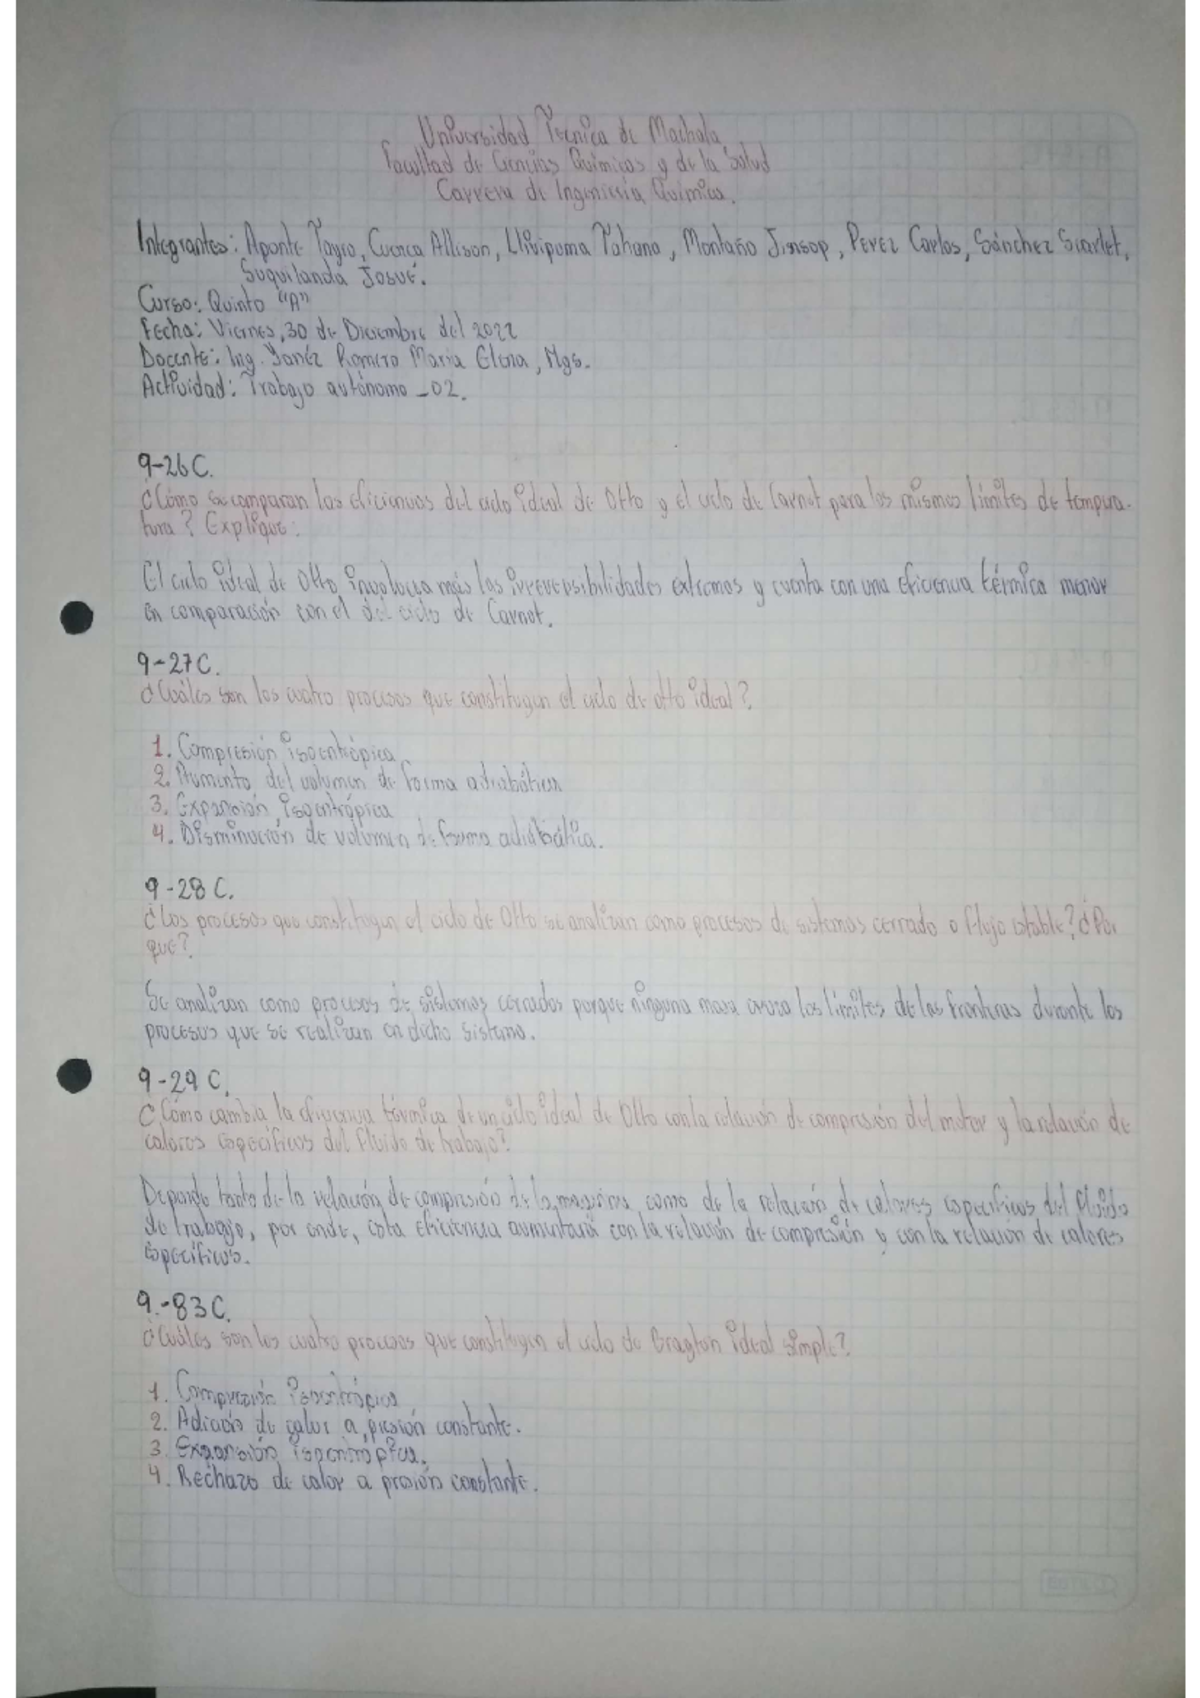 Universidad Técnica de Machala
Facultad de Ciencias Químicas y de la Salud
Carrera de Ingeniería Química.
Integrantes: Aponte Tayro, Cuenca Allison, Llivipuma Tahana, Montaño Jinsop, Perez Carlos, Sánchez Scarlet,
Suquilanda Josué.
Curso: Quinto "A"
Fecha: Viernes, 30 de Diciembre del 2022
Docente: Ing. Yanéz Romero Maria Elena, Mgs.
Actividad: Trabajo autónomo _02.
9-26C.
¿Cómo se comparan las eficiencias del ciclo ideal de Otto y el ciclo de Carnot para los mismos límites de tempera-
tura? Explique:
El ciclo ideal de Otto involucra más las irreversibilidades extremas y cuenta con una eficiencia térmica menor
en comparación con el del ciclo de Carnot.
9-27C.
¿Cuáles son los cuatro procesos que constituyen el ciclo de otto ideal?
1. Compresión isoentrópica
2. Aumento del volumen de forma adiabática
3. Expansión isoentrópica
4. Disminución de volumen de forma adiabática.
9-28 C.
¿Los procesos que constituyen el ciclo de Otto se analizan como procesos de sistemas cerrado o flujo estable? ¿Por
qué?
Se analizan como procesos de sistemas cerrados porque ninguna masa cruza los límites de las fronteras durante los
procesos que se realizan en dicho sistema.
9-29 C.
¿Cómo cambia la eficiencia térmica de un ciclo ideal de Otto con la relación de compresión del motor y la relación de
calores específicos del fluido de trabajo?
Depende tanto de la relación de compresión de la maquina como de la relación de calores específicos del fluido
de trabajo, por ende, esta eficiencia aumentará con la relación de compresión y con la relación de calores
específicos.
9.-83C.
¿Cuáles son los cuatro procesos que constituyen el ciclo de Brayton ideal simple?
1. Compresión isoentrópica
2. Adición de calor a presión constante.
3. Expansión isoentrópica.
4. Rechazo de calor a presión constante.